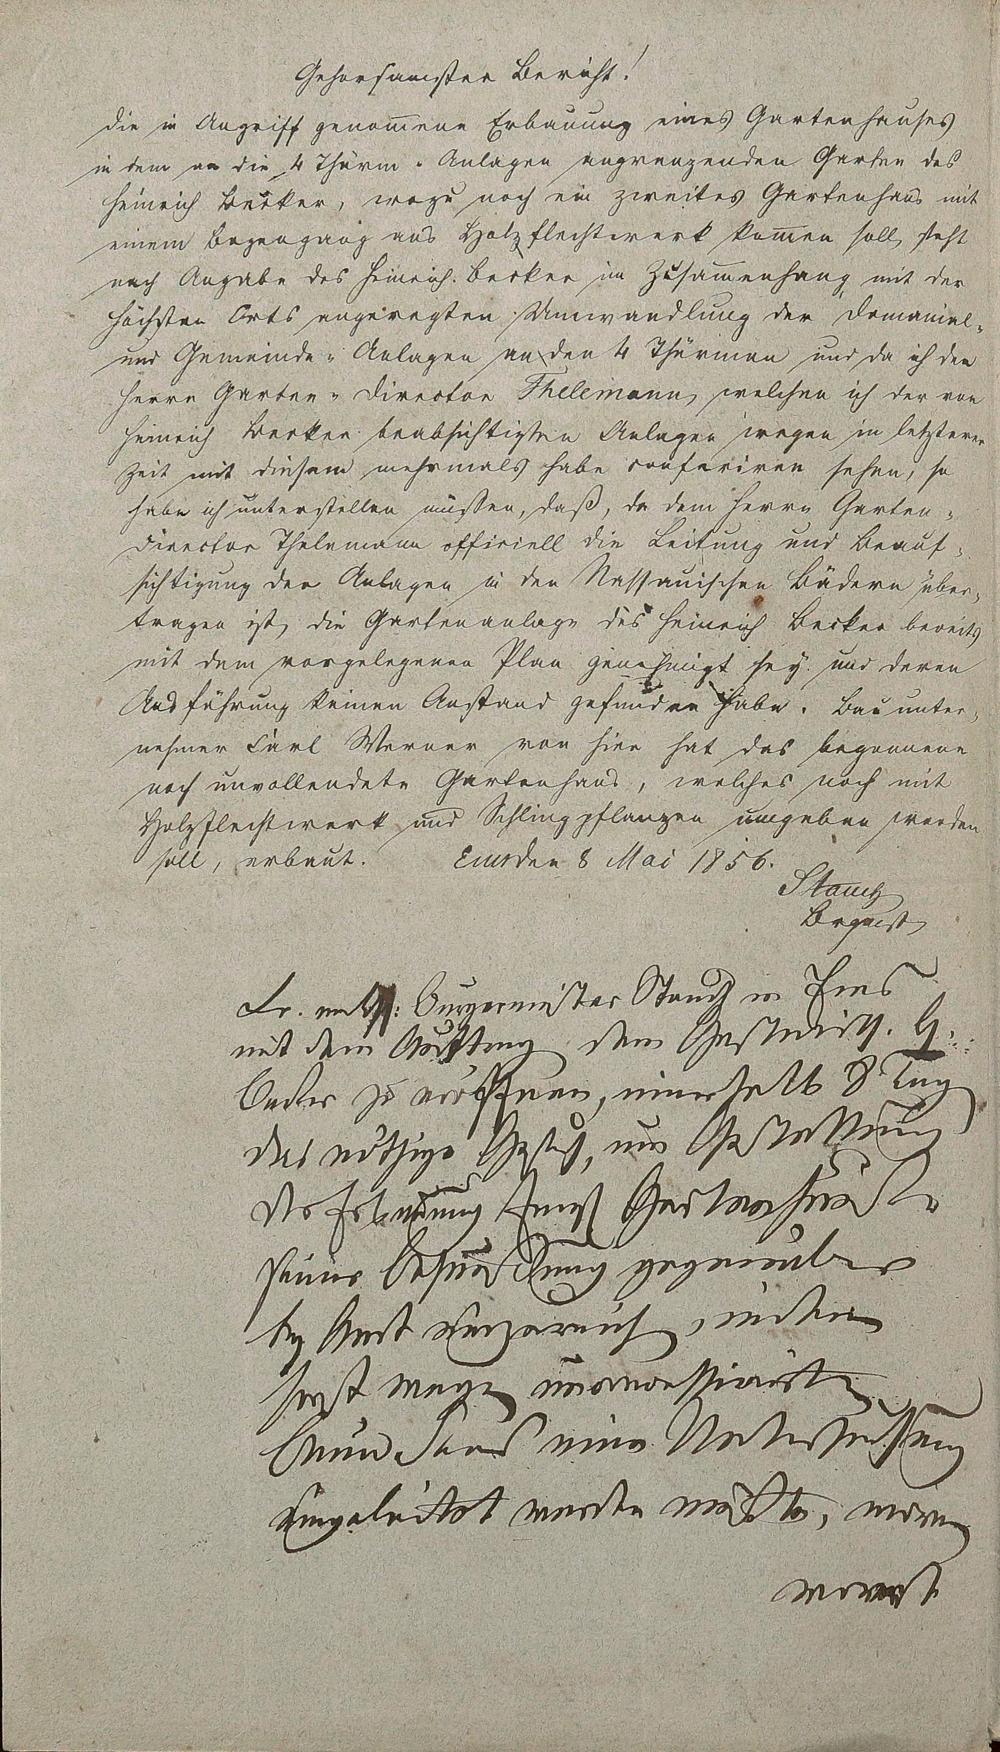 Gehorsamster Bericht!
Die in Angriff genom̄ene Erbauung eines Gartenhauses
in dem an die 4 Thürm-Anlagen angrenzenden Garten des
Heinrich Becker, wozu noch ein zweites Gartenhaus mit
einem Bogengang aus Holzflechtwerk kom̄en soll, steht
nach Angabe des Heinrich Becker im Zusam̄enhang mit der
höchsten Orts angeregten Umwandlung der Domanial-
und Gemeinde-Anlagen an den 4 Thürmen und da ich den
Herrn Garten-Director Thelemann, welchen ich der von
Heinrich Becker beabsichtigten Anlagen wegen in letzterer
Zeit mit diesem mehrmals habe conferiren sehen, so
habe ich unterstellen müssen, daß, da dem Herrn Garten-
Director Thelemann officiell die Leitung und Beauf-
sichtigung der Anlagen in den Nassauischen Bädern über-
tragen ist, die Gartenanlage des Heinrich Becker bereits
mit dem vorgelegenen Plan genehmigt sey und deren
Ausführung keinen Anstand gefunden habe. Bauunter-
nehmer Carl Werner von hier hat das begonnene
noch unvollendete Gartenhaus, welches noch mit
Holzflechtwerk und Schlingpflanzen umgeben werden
soll, erbaut. Ems den 8 Mai 1856.
Stauch
Bürgermeister Stauch in Ems
mit dem Auftrag dem H.
Becker zu eröffnen, innerhalb 8 Tag
das nöthige Gesuch, um Gestattung
der Erbauung seines Gartenhauses
seiner Besitzung gegenüber
bey Amt einzureichen, indem
sonst wegen unconcessionirten
Bauens eine Untersuchung
eingeleitet werden müßte,